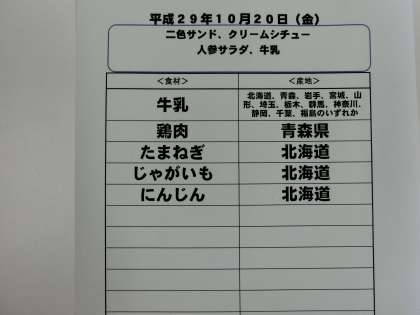 平成29年10月20日（金）
二色サンド、クリームシチュー
人参サラダ、牛乳
＜食材＞ ＜産地＞
牛乳 北海道、青森、岩手、宮城、山
形、埼玉、栃木、群馬、神奈川、
静岡、千葉、福島のいずれか
鶏肉 青森県
たまねぎ 北海道
じゃがいも 北海道
にんじん 北海道